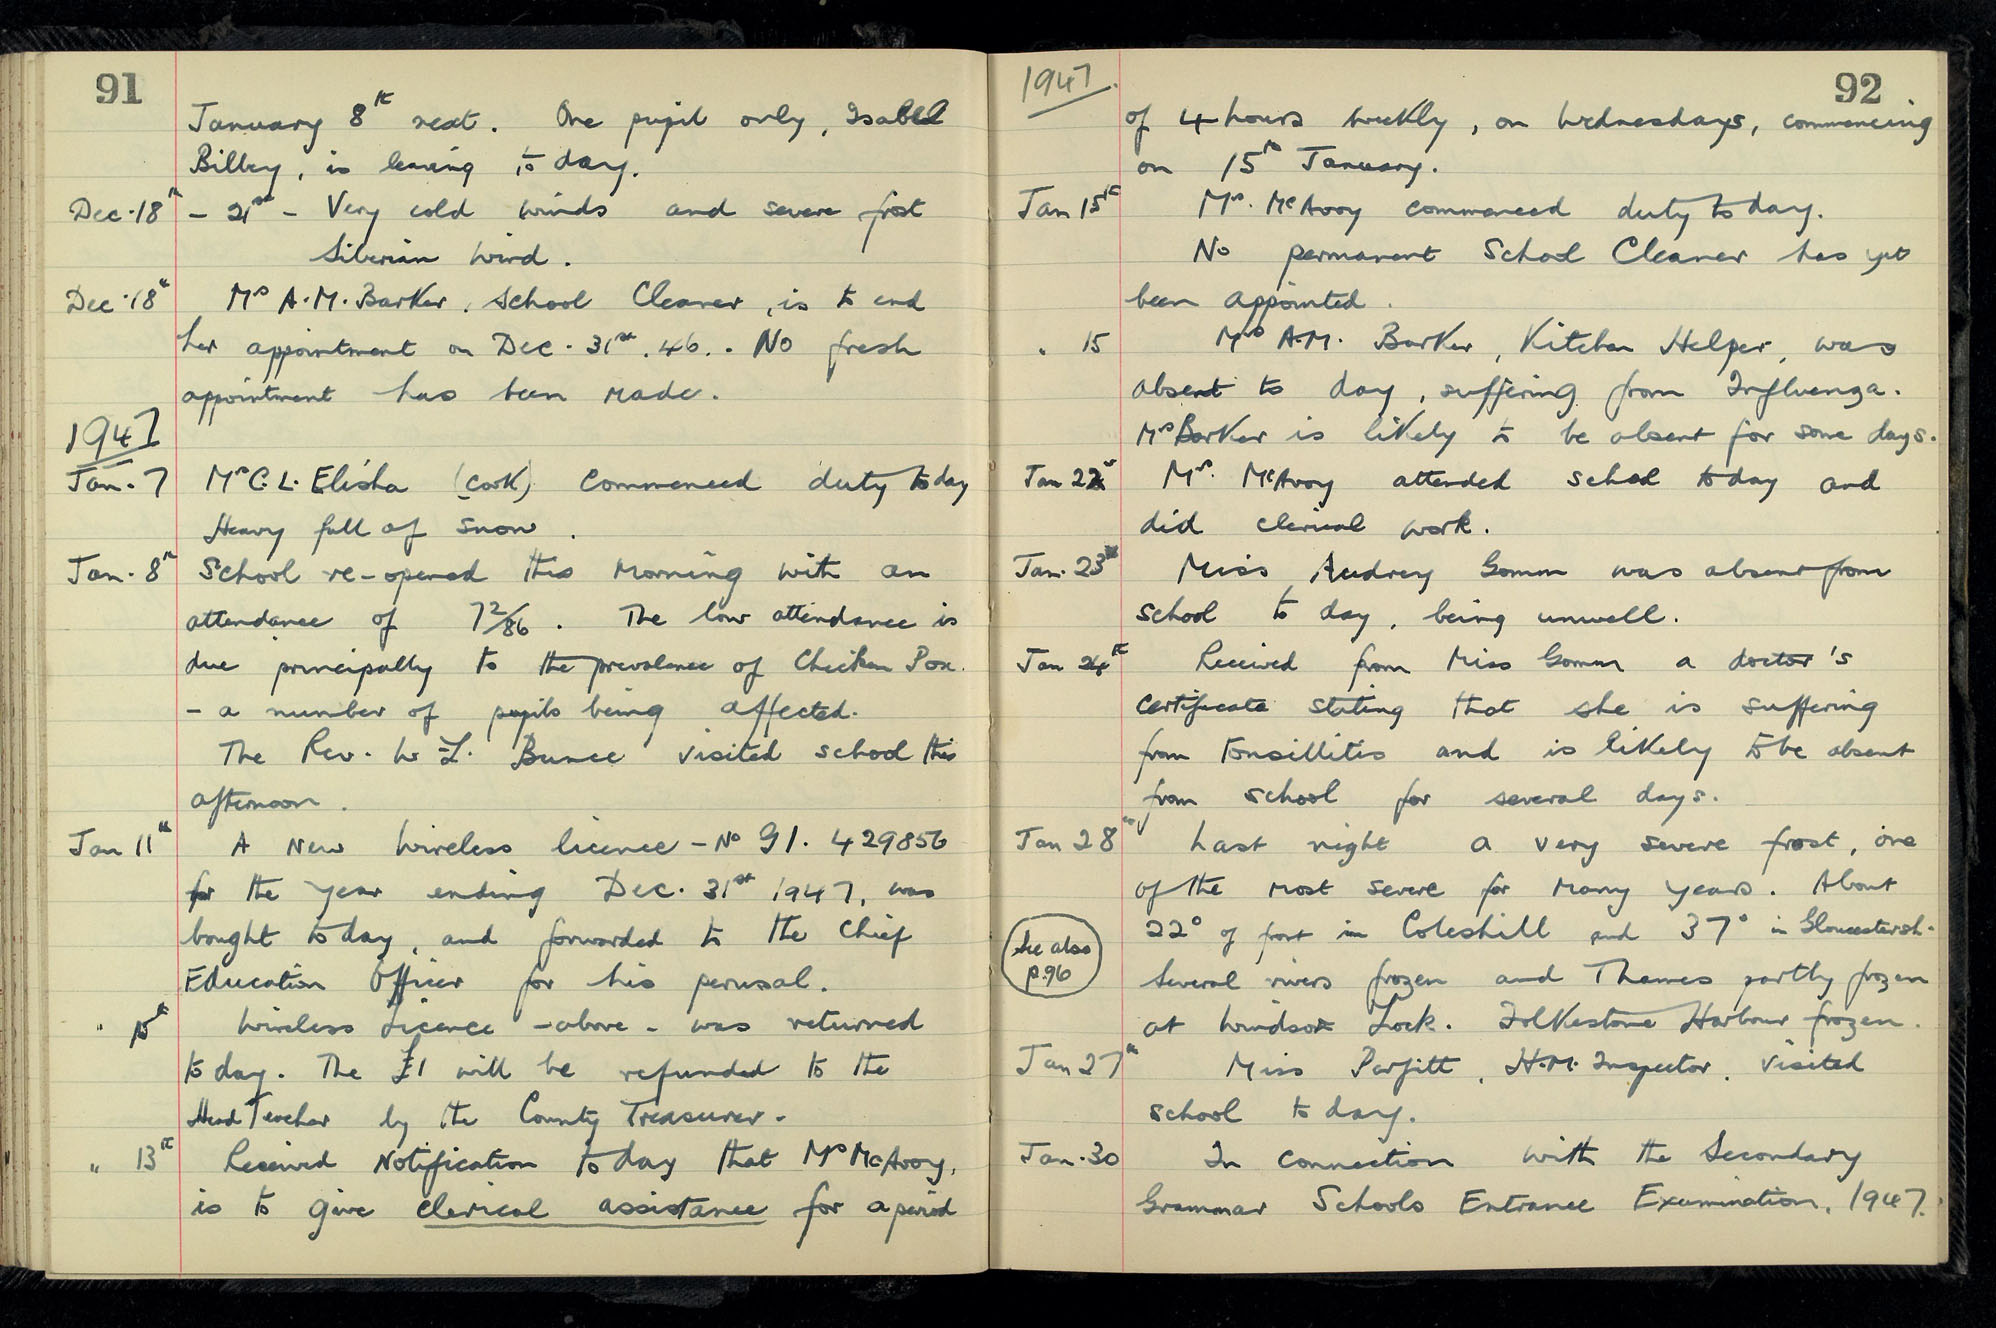 91
January 8th next. One pupil only, Isabel
Bilby, is leaving to day.
Dec. 18th - 21st - Very cold winds and severe frost
Siberian wind.
Dec. 18th Mrs A.M. Barker, School Cleaner, is to end
her appointment on Dec. 31st. 46. . No fresh
appointment has been made.
1947
Jan. 7 Mrs C. L. Elisha (cook) commenced duty to day
Heavy fall of snow.
Jan. 8th School re-opened this morning with an
attendance of 72/86. The low attendance is
due principally to the prevalence of Chicken Pox.
- a number of pupils being affected.
The Rev. W Bunce visited school this
afternoon.
Jan 11th A New Wireless licence - No G1. 429856
for the year ending Dec. 31st 1947, was
bought to day, and forwarded to the Chief
Education Officer for his perusal.
" Wireless Licence - above - was returned
to day. The £1 will be refunded to the
Head Teacher by the County Treasurer.
" 13th Received Notification to day that McAvoy,
is to give clerical assistance for a period
1947.
92
of 4 hours weekly, on Wednesdays, commencing
on 15th January.
Jan 15th Mr. McAvoy commenced duty to day.
No permanent School Cleaner has yet
been appointed.
" 15 Mrs A.M. Barker, Kitchen Helper, was
absent to day, suffering from Influenza.
Mrs Barker is likely to be absent for some days.
Jan 22 Mr. McAvoy attended school to day and
did clerical work.
Jan. 23rd Miss Audrey Gomm was absent from
school to day, being unwell.
Jan 24th Received from Miss Gomm a doctor's
certificate stating that she is suffering
from Tonsillitis and is likely to be absent
from school for several days.
Jan 28th Last night a very severe frost, one
of the most severe for many years. About
22° of frost in Coleshill and 37° in Gloucestersh.
See also
p.96
Several rivers frozen and Thames partly frozen
at Windsor Lock. Folkestone Harbour frozen.
Jan 27th Miss Parfitt, H.M. Inspector, visited
school to day.
Jan. 30 In connection with the Secondary
Grammar Schools Entrance Examination, 1947.